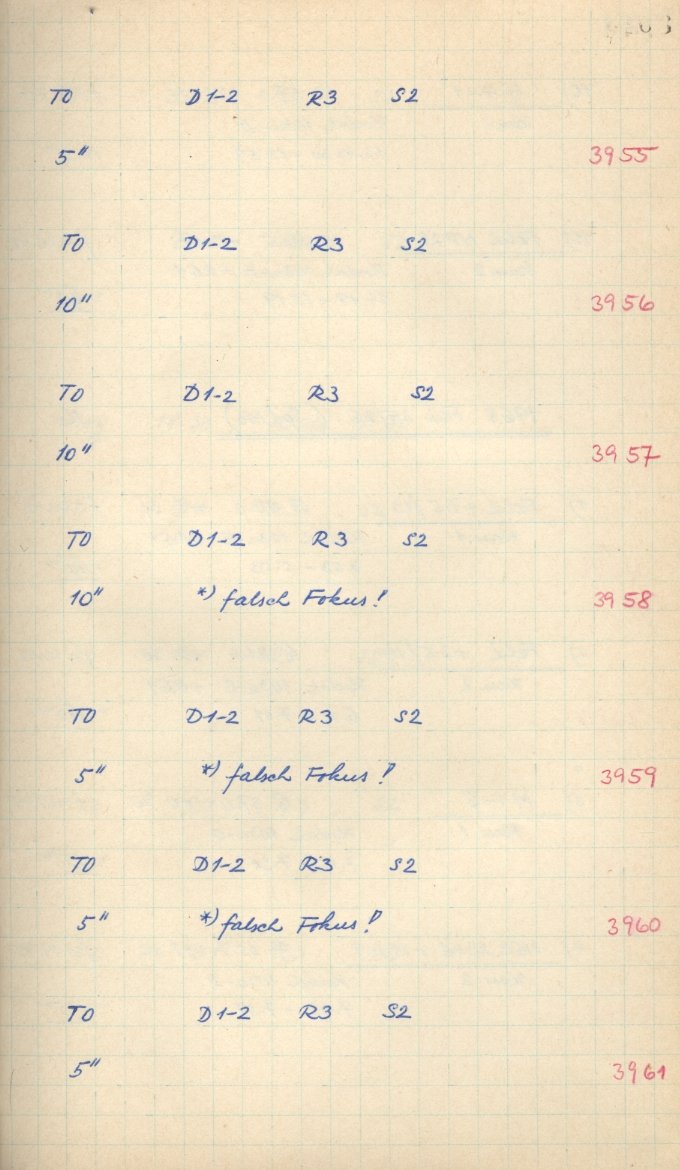 TO D1-2 R3 S2
5" 3955
TO D1-2 R3 S2
10" 3956
TO D1-2 R3 S2
10" 3957
TO D1-2 R3 S2
10" *) falsch Fokus! 3958
TO D1-2 R3 S2
5" *) falsch Fokus! 3959
TO D1-2 R3 S2
5" *) falsch Fokus! 3960
TO D1-2 R3 S2
5" 3961